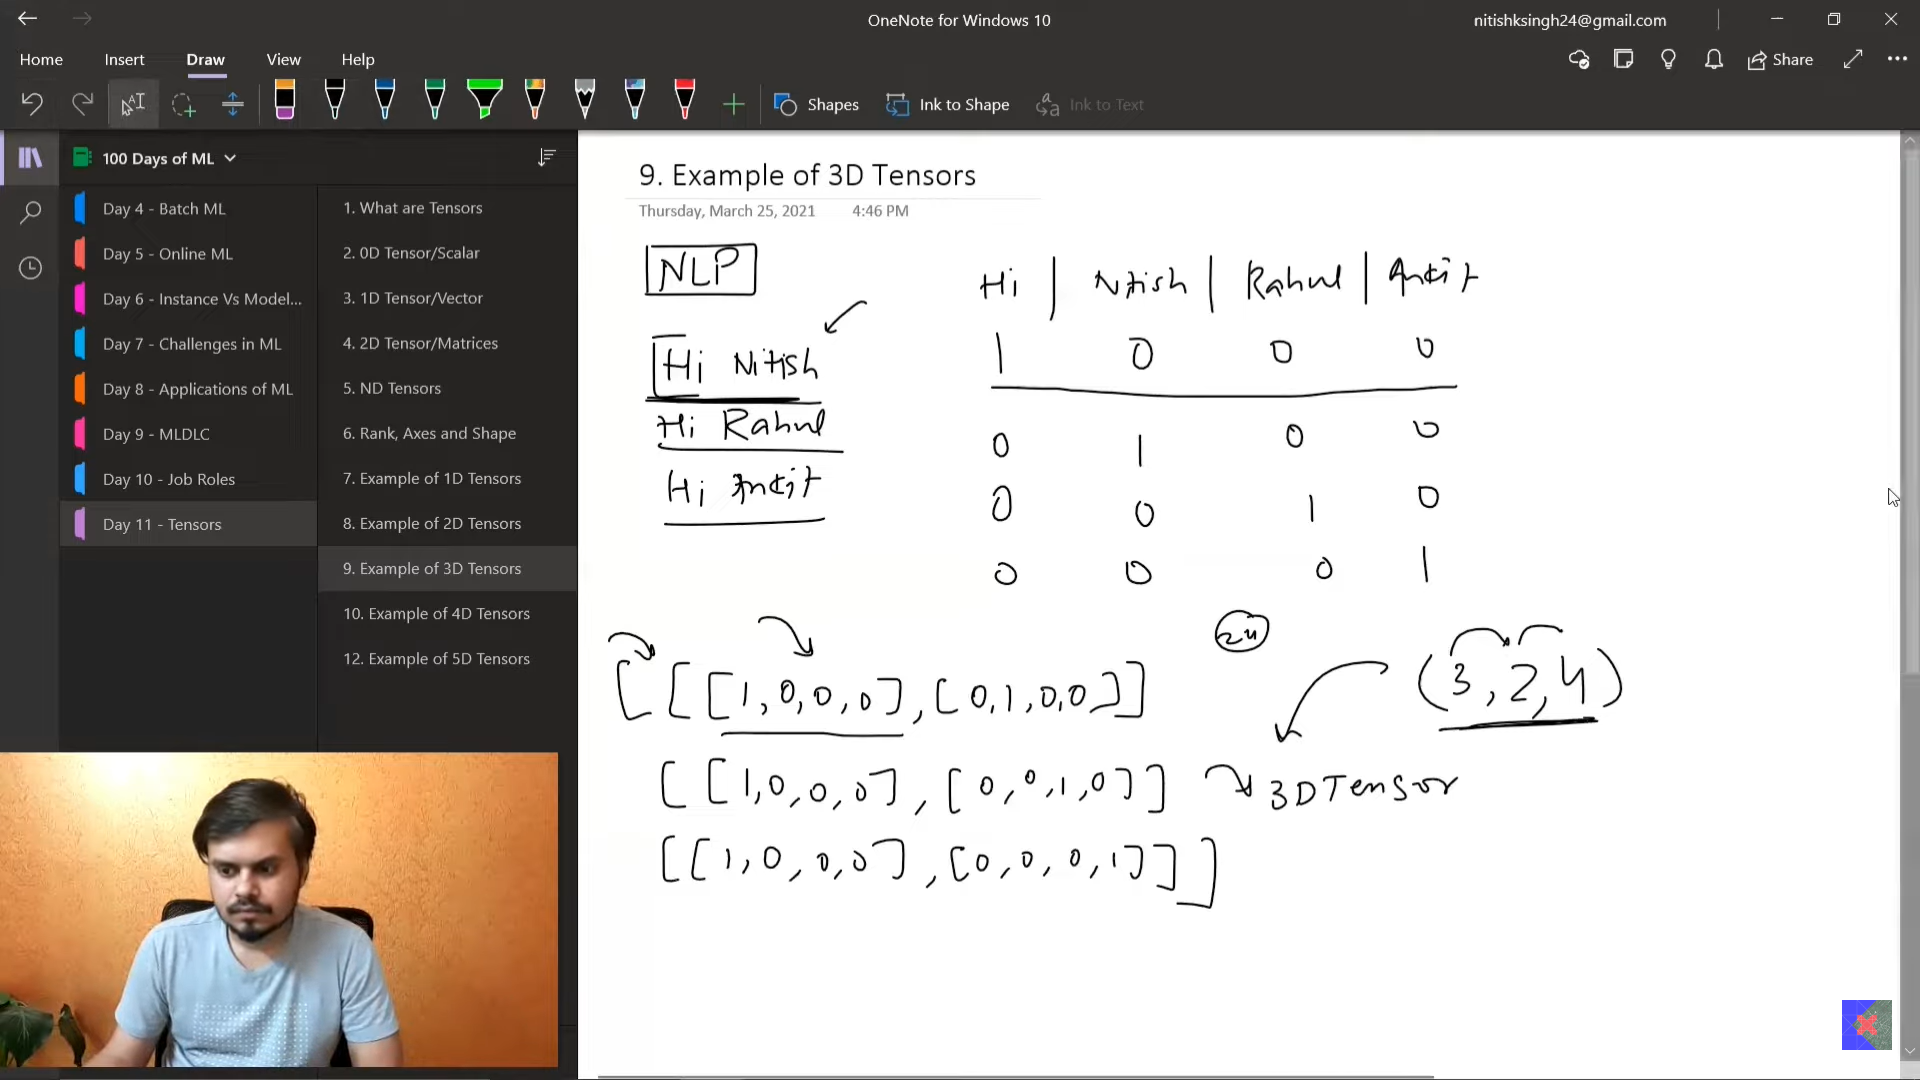 OneNote for Windows 10
nitishksingh24@gmail.com
Home Insert Draw View Help
Share
Shapes Ink to Shape Ink to Text
100 Days of ML
Day 4 - Batch ML
Day 5 - Online ML
Day 6 - Instance Vs Model...
Day 7 - Challenges in ML
Day 8 - Applications of ML
Day 9 - MLDLC
Day 10 - Job Roles
Day 11 - Tensors
1. What are Tensors
2. 0D Tensor/Scalar
3. 1D Tensor/Vector
4. 2D Tensor/Matrices
5. ND Tensors
6. Rank, Axes and Shape
7. Example of 1D Tensors
8. Example of 2D Tensors
9. Example of 3D Tensors
10. Example of 4D Tensors
12. Example of 5D Tensors
9. Example of 3D Tensors
Thursday, March 25, 2021 4:46 PM
NLP
Hi Nitish
Hi Rahul
Hi Ankit
Hi | Nitish | Rahul | Ankit
1 0 0 0
0 1 0 0
0 0 1 0
0 0 0 1
24
(3,2,4)
[ [ [1,0,0,0], [0,1,0,0] ]
[ [1,0,0,0], [0,0,1,0] ] 3D Tensor
[ [1,0,0,0], [0,0,0,1] ] ]